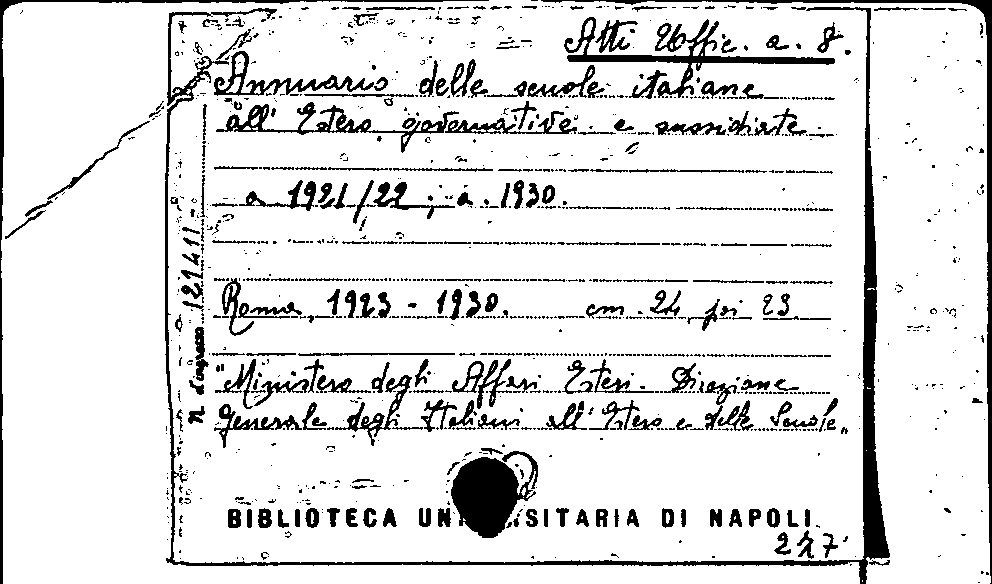 Atti Uffic. a. 8.
Annuario delle scuole italiane
all' Estero governative e sussidiate
a 1921/22 ; a. 1930.
N. d'ingresso 121411
Roma, 1923 - 1930. cm. 24, poi 23
"Ministero degli Affari Esteri. Direzione
Generale degli Italiani all' Estero e delle Scuole„
BIBLIOTECA UNI RSITARIA DI NAPOLI
277